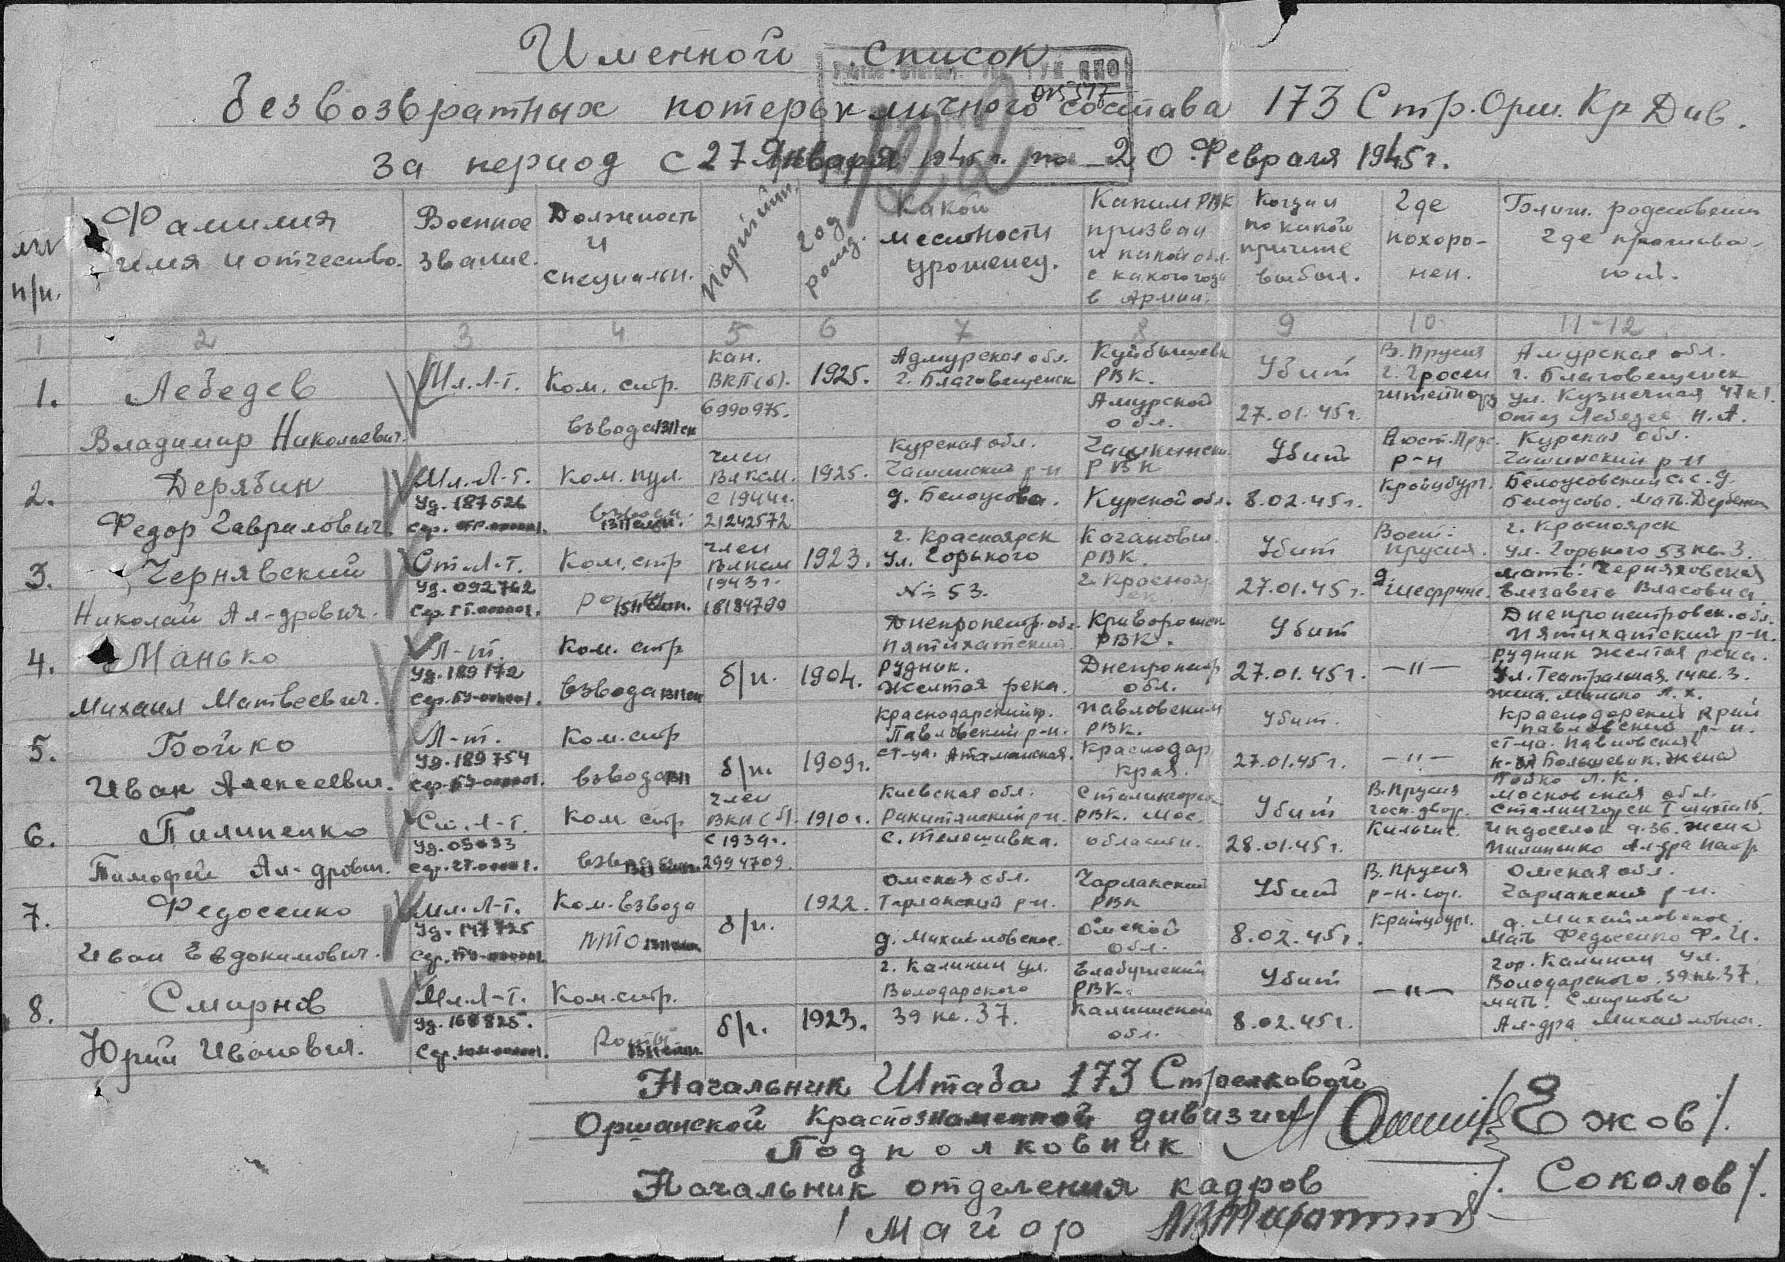 Именной список
безвозвратных потерь личного состава 173 Стр. Орш. Кр Див.
за период с 27 Января 1945 г. по 20 Февраля 1945 г.
№№ п/п.
Фамилия имя и отчество.
Военное звание.
Должность и специальн.
Партийн.
год рожд.
Какой местности уроженец.
Каким РВК призван и какой обл. с какого года в Армии.
Когда и по какой причине выбыл.
Где похоронен.
Ближ. родственники где проживают.
1 2 3 4 5 6 7 8 9 10 11-12
1. Лебедев Владимир Николаевич.
Мл. Л-т.
Ком. стр. взвода
кан. ВКП(б). 6990975.
1925.
Амурская обл. г. Благовещенск
Куйбышевк РВК. Амурской обл.
Убит 27.01.45 г.
В. Прусия г. Гросен
Амурская обл. г. Благовещенск ул. Кузнечная 47 кв 1. отец Лебедев Н. А.
2. Дерябин Федор Гаврилович
Мл. Л-т. Уд. 187526
Ком. пул. взвода
член ВЛКСМ. с 1944 г. 21242572
1925.
Курская обл. Чашинский р-н д. Белоусова.
РВК Курской обл.
Убит 8.02.45 г.
р-н Крайцбург.
Курская обл. Чашинский р-н Белоусовский с. с. д. Белоусово. мать
3. Чернявский Николай Ал-дрович.
Ст. Л-т. Уд. 092762
Ком. стр роты
член ВЛКСМ 1943 г. 18184790
1923.
г. Красноярск ул. Горького № 53.
РВК. г. Краснояр
Убит 27.01.45 г.
Вост: Прусия.
г. Красноярск ул. Горького 53 кв. 3. мать: Черняховская Елизавета Власовна
4. Манько Михаил Матвеевич.
Л-т. Уд. 189172
Ком. стр взвода
б/п.
1904.
Днепропетр. обл Пятихатский рудник. Желтая река.
Криворожск РВК. Днепропетр обл.
Убит 27.01.45 г.
—"—
Днепропетровск. обл. Пятихатский р-н. рудник Желтая река. ул. Театральная, 14 кв. 3. жена. Манько Л. Х.
5. Бойко Иван Алексеевич.
Л-т. Уд. 189754
Ком. стр взвода
б/п.
1909 г.
Краснодарский кр. Павловский р-н. ст-ца. Атаманская.
Павловским РВК. Краснодар. Края.
Убит. 27.01.45 г.
—"—
Краснодарский край Павловский р-н. ст-ца. Павловская к-з Большевик. жена Бойко Л. К.
6. Пилипенко Тимофей Ал-дрович.
Ст. Л-т. Уд.
Ком. стр
член ВКП(б). с 1939 г. 2994709.
1910 г.
Киевская обл. Ракитянский р-н. с. Телешивка.
Сталиногорск РВК. Мос. области.
Убит 28.01.45 г.
В. Прусия госп. двор.
Московская обл. Сталиногорск I шахта 15 жена Пилипенко
7. Федосенко Иван Евдокимович.
Мл. Л-т. Уд. 147725
Ком. взвода ПТО
б/п.
1922.
Омская обл. Чарлакский р-н. д. Михайловское.
Чарлакский РВК Омской обл.
Убит 8.02.45 г.
В. Прусия р-н. гор. Крайцбург.
Омская обл. Чарлакский р-н. д. Михайловское. мать Федосенко Ф. И.
8. Смирнов Юрий Иванович.
Мл. Л-т. Уд. 168825.
Ком. стр. роты
б/п.
1923.
г. Калинин ул. Володарского 39 кв. 37.
РВК. Калининской обл.
Убит 8.02.45 г.
—"—
Гор. Калинин ул. Володарского. 39 кв. 37. мать: Смирнова Ал-дра Михайловна.
Начальник Штаба 173 Стрелковой
Оршанской Краснознаменной дивизии
Подполковник /Ежов/.
Начальник отделения кадров
Майор /. Соколов/.